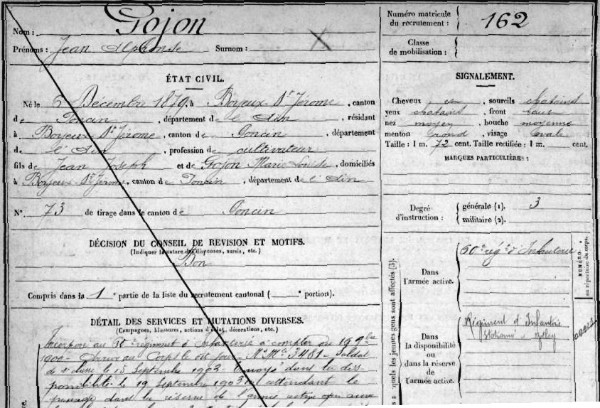 Nom : Gojon
Prénoms : Jean Alphonse Surnom : X
Numéro matricule du recrutement : 162
Classe de mobilisation :
ÉTAT CIVIL.
Né le 5 Décembre 1879, à Boyeux St Jérome, canton
de Poncin, département de l'Ain, résidant
à Boyeux St Jérome, canton de Poncin, département
de l'Ain, profession de cultivateur
fils de Jean Joseph et de Gojon Marie, domiciliés
à Boyeux St Jérome, canton de Poncin, département de l'Ain
N° 73 de tirage dans le canton de Poncin
SIGNALEMENT.
Cheveux sourcils châtains
yeux châtains, front haut
nez moyen, bouche moyenne
menton rond, visage ovale
Taille : 1 m. 72 cent. Taille rectifiée : 1 m. cent.
MARQUES PARTICULIÈRES :
DÉCISION DU CONSEIL DE RÉVISION ET MOTIFS.
Bon
Compris dans la 1e partie de la liste du recrutement cantonal ( portion).
Degré d'instruction : générale (1). 3
militaire (2).
DÉTAIL DES SERVICES ET MUTATIONS DIVERSES.
(Campagnes, blessures, actions d'éclat, décorations, etc.)
Dans l'armée active.
Régiment d'Infanterie
Dans la disponibilité ou dans la réserve de l'armée active.
NUMÉRO
1900. Arrivé au Corps le dit jour. N° Mle 3481. Soldat
de 2e classe le 15 Septembre 1903. Envoyé dans la dis-
ponibilité le 19 Septembre 1903 en attendant le
passage dans la réserve de l'armée active